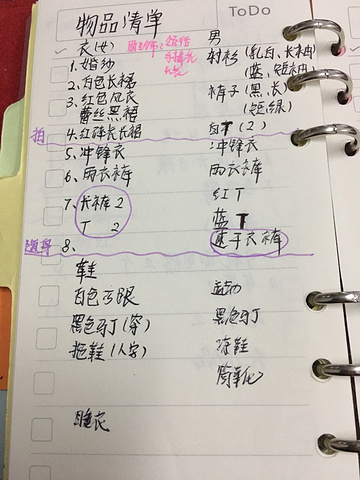 物品清单
ToDo
衣(女)
男
1.婚纱
衬衫(乳白、长袖)
(蓝、短袖)
2.白色长裙
3.红色风衣
裤子(黑、长)
蕾丝黑裙
(短、绿)
拍
4.红碎花长裙
白T(2)
5.冲锋衣
冲锋衣
6.雨衣裤
雨衣裤
7.长裤 2
红T
T 2
蓝T
8.
速干衣裤
鞋
白色高跟
运动
黑色马丁(穿)
黑色马丁
拖鞋(人字)
凉鞋
睡衣